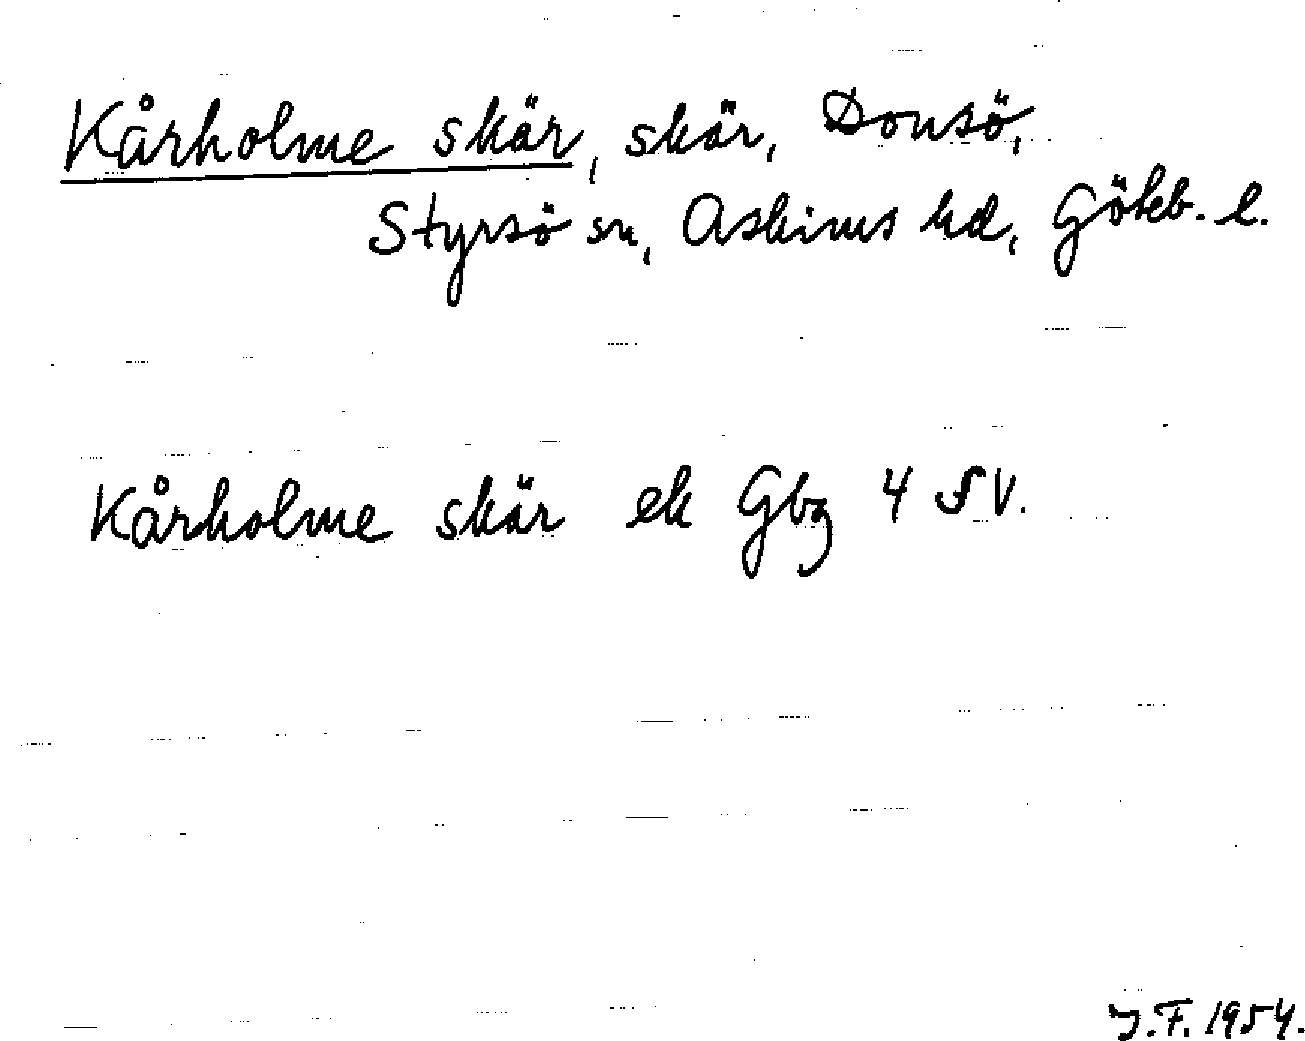 Kårholme skär, skär, Donsö,
Styrsö sn, Askims hd, Göteb. l.
Kårholme skär ek Gbg 4 SV.
J.F. 1954.